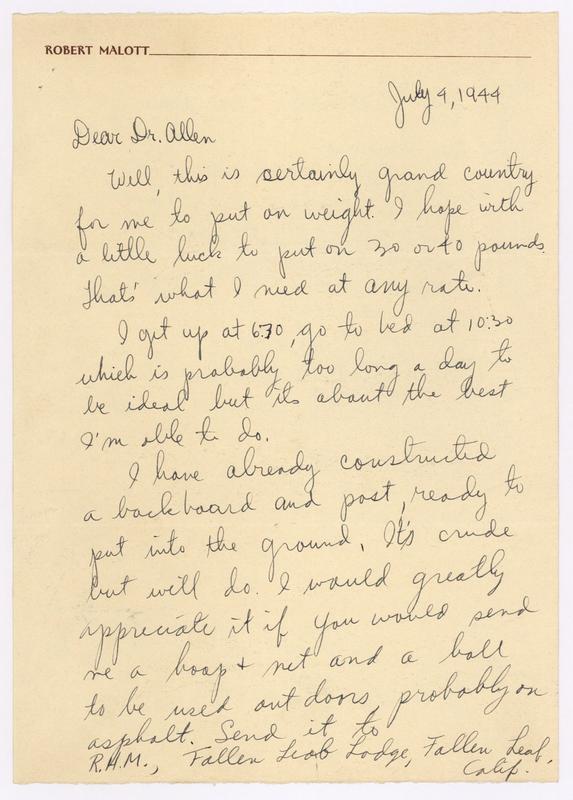 ROBERT MALOTT
July 4, 1944
Dear Dr. Allen
Well, this is certainly grand country
for me to put on weight. I hope with
a little luck to put on 30 or 40 pounds.
That's what I need at any rate.
I get up at 6:30, go to bed at 10:30
which is probably too long a day to
be ideal but its about the best
I'm able to do.
I have already constructed
a backboard and post, ready to
put into the ground. It's crude
but will do. I would greatly
appreciate it if you would send
me a hoop + net and a ball
to be used out doors, probably on
asphalt. Send it to
R.H.M., Fallen Leaf Lodge, Fallen Leaf,
Calif.